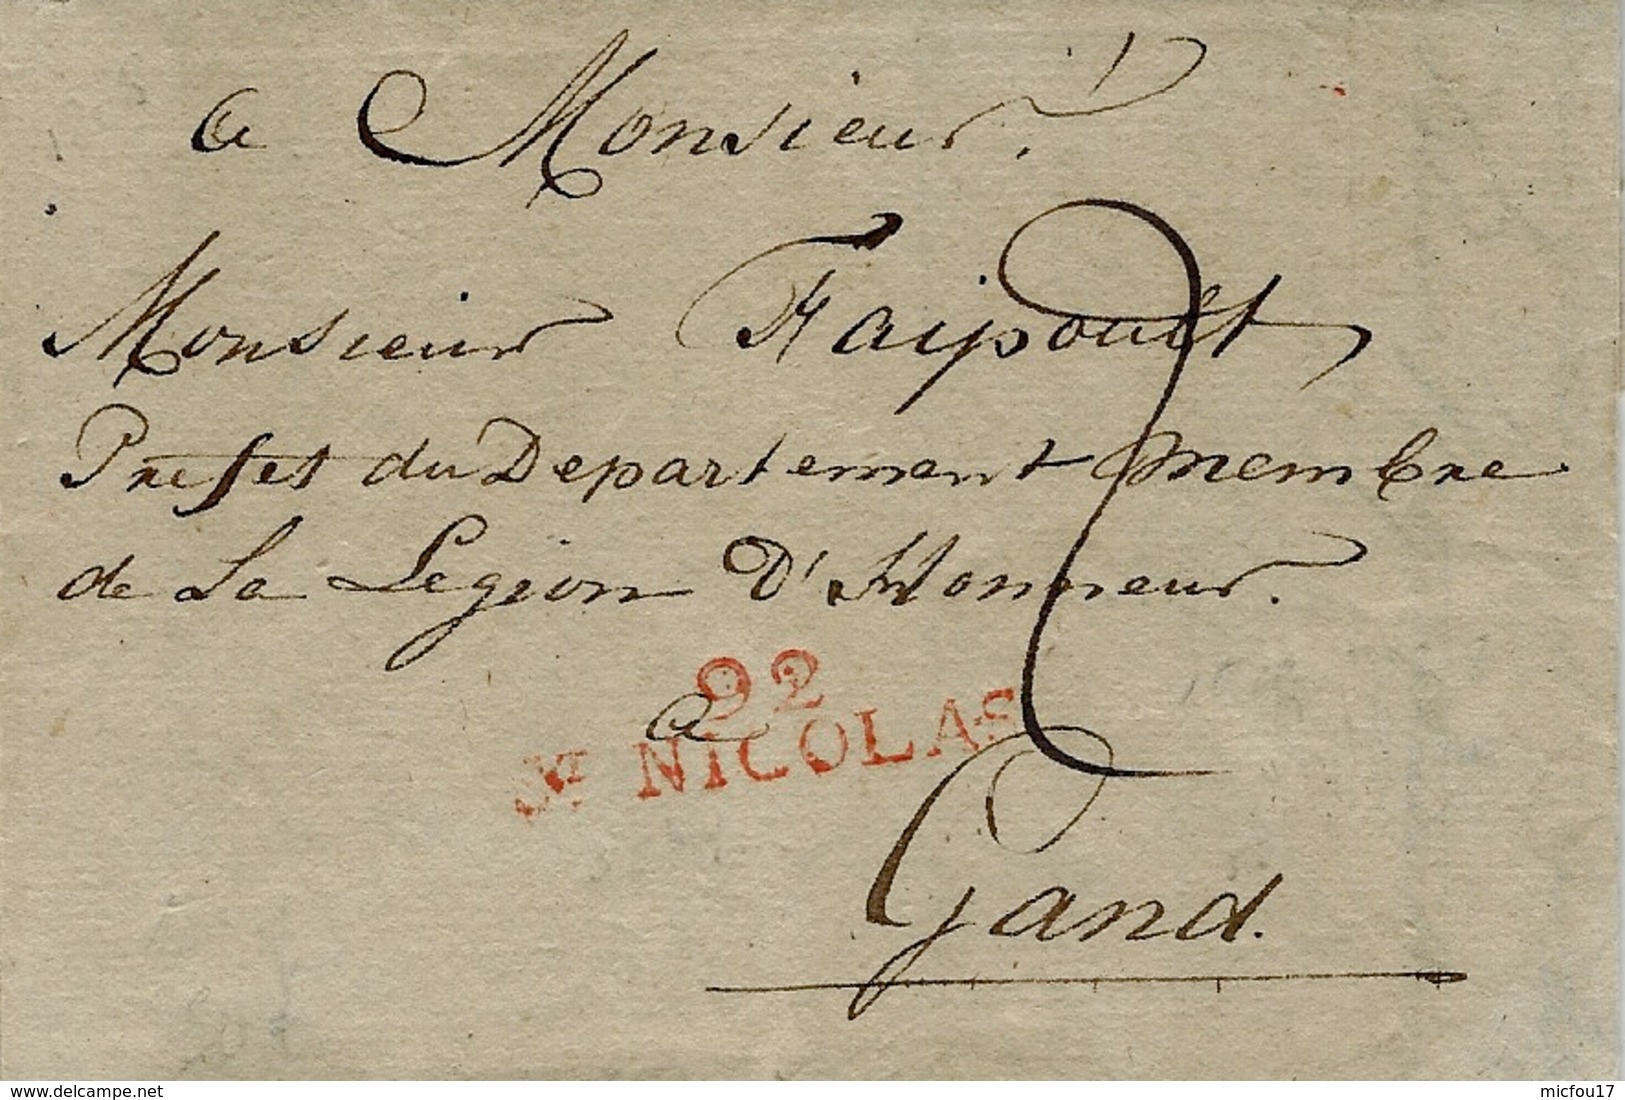 a Monsieur.
Monsieur Faipoult
Preffet du Departement Membre
de La Legion D'Honneur.
a
92
ST NICOLAS
2
Gand.
www.delcampe.net
micfou17